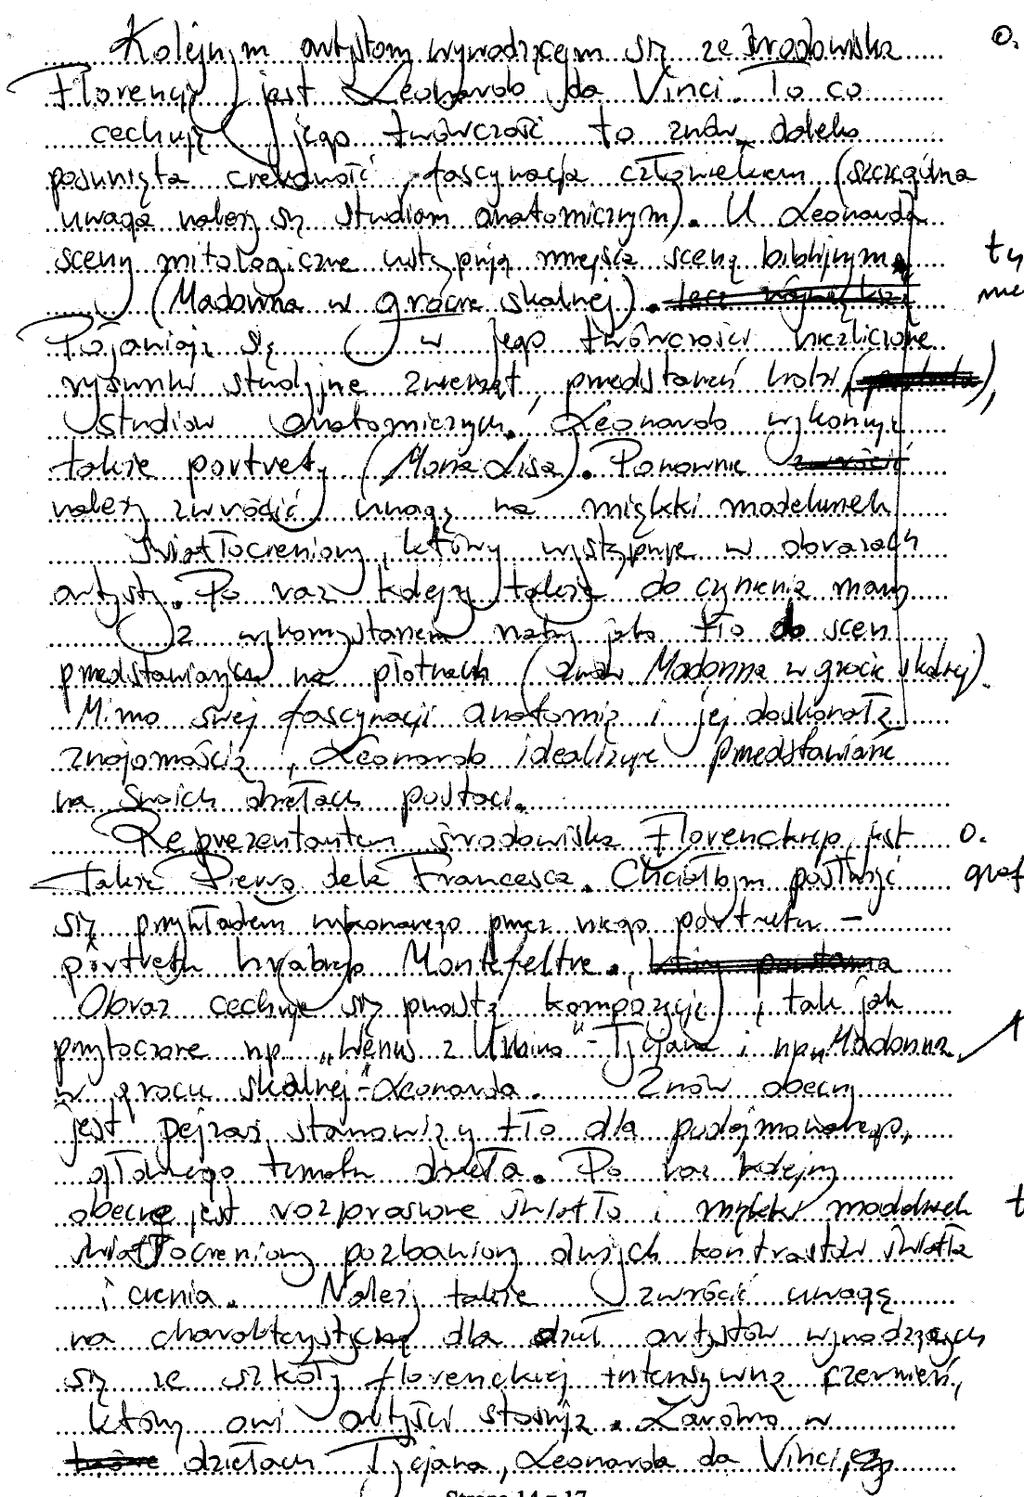 Kolejnym artystom wywodzącym się ze środowiska o.
Florencji jest Leonardo da Vinci. To co
cechuje jego twórczość to znów daleko
posunięta cielesność, fascynacja człowiekiem (szczególna
uwaga należy się studiom anatomicznym). U Leonarda
sceny mitologiczne ustępują miejsca sceną biblijnym
(Madonna w grocie skalnej).
Pojawiają się w jego twórczości niezliczone
rysunki studyjne zwierząt, przedstawień ludzi
studiów anatomicznych. Leonardo wykonuje
także portrety (Mona Lisa). Ponownie
należy zwrócić uwagę na miękki modelunek
światłocieniowy, który występuje w obrazach
artysty. Po raz kolejny także do czynienia mamy
z wykorzystaniem natury jako tło do scen
przedstawianych na płótnach (znów Madonna w grocie skalnej).
Mimo swej fascynacji anatomią i jej doskonałą
znajomością, Leonardo idealizuje przedstawiane
na swoich dziełach postaci.
Reprezentantem środowiska Florenckiego jest o.
także Pierro dela Francesca. Chciałbym posłużyć graf
się przykładem wykonanego przez niego portretu –
portretu hrabiego Montefeltre.
Obraz cechuje się prostą kompozycją i tak jak
przytoczone np. „Wenus z Urbino" - Tycjana i np „Madonna
w grocie skalnej" - Leonarda. Znów obecny
jest pejzaż stanowiący tło dla podejmowanego,
głównego tematu dzieła. Po raz kolejny
obecne jest rozproszone światło i miękki modelunek
światłocieniowy pozbawiony dużych kontrastów światła
i cienia. Należy także zwrócić uwagę
na charakterystyczną dla dzieł artystów wywodzących
się ze szkoły florenckiej intensywną czerwień,
którą owi artyści stosują. Zarówno w
dziełach Tycjana, Leonarda da Vinci, czy
Strona 14 z 17